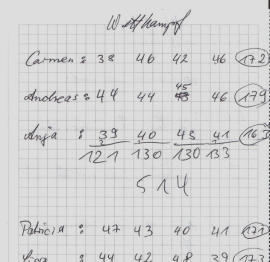 Wettkampf
Carmen : 38 46 42 46 172
Andreas : 44 44 45 46 179
Anja : 39 40 43 41 163
121 130 130 133
514
Patricia : 47 43 40 41 171
44 42 48 39 173